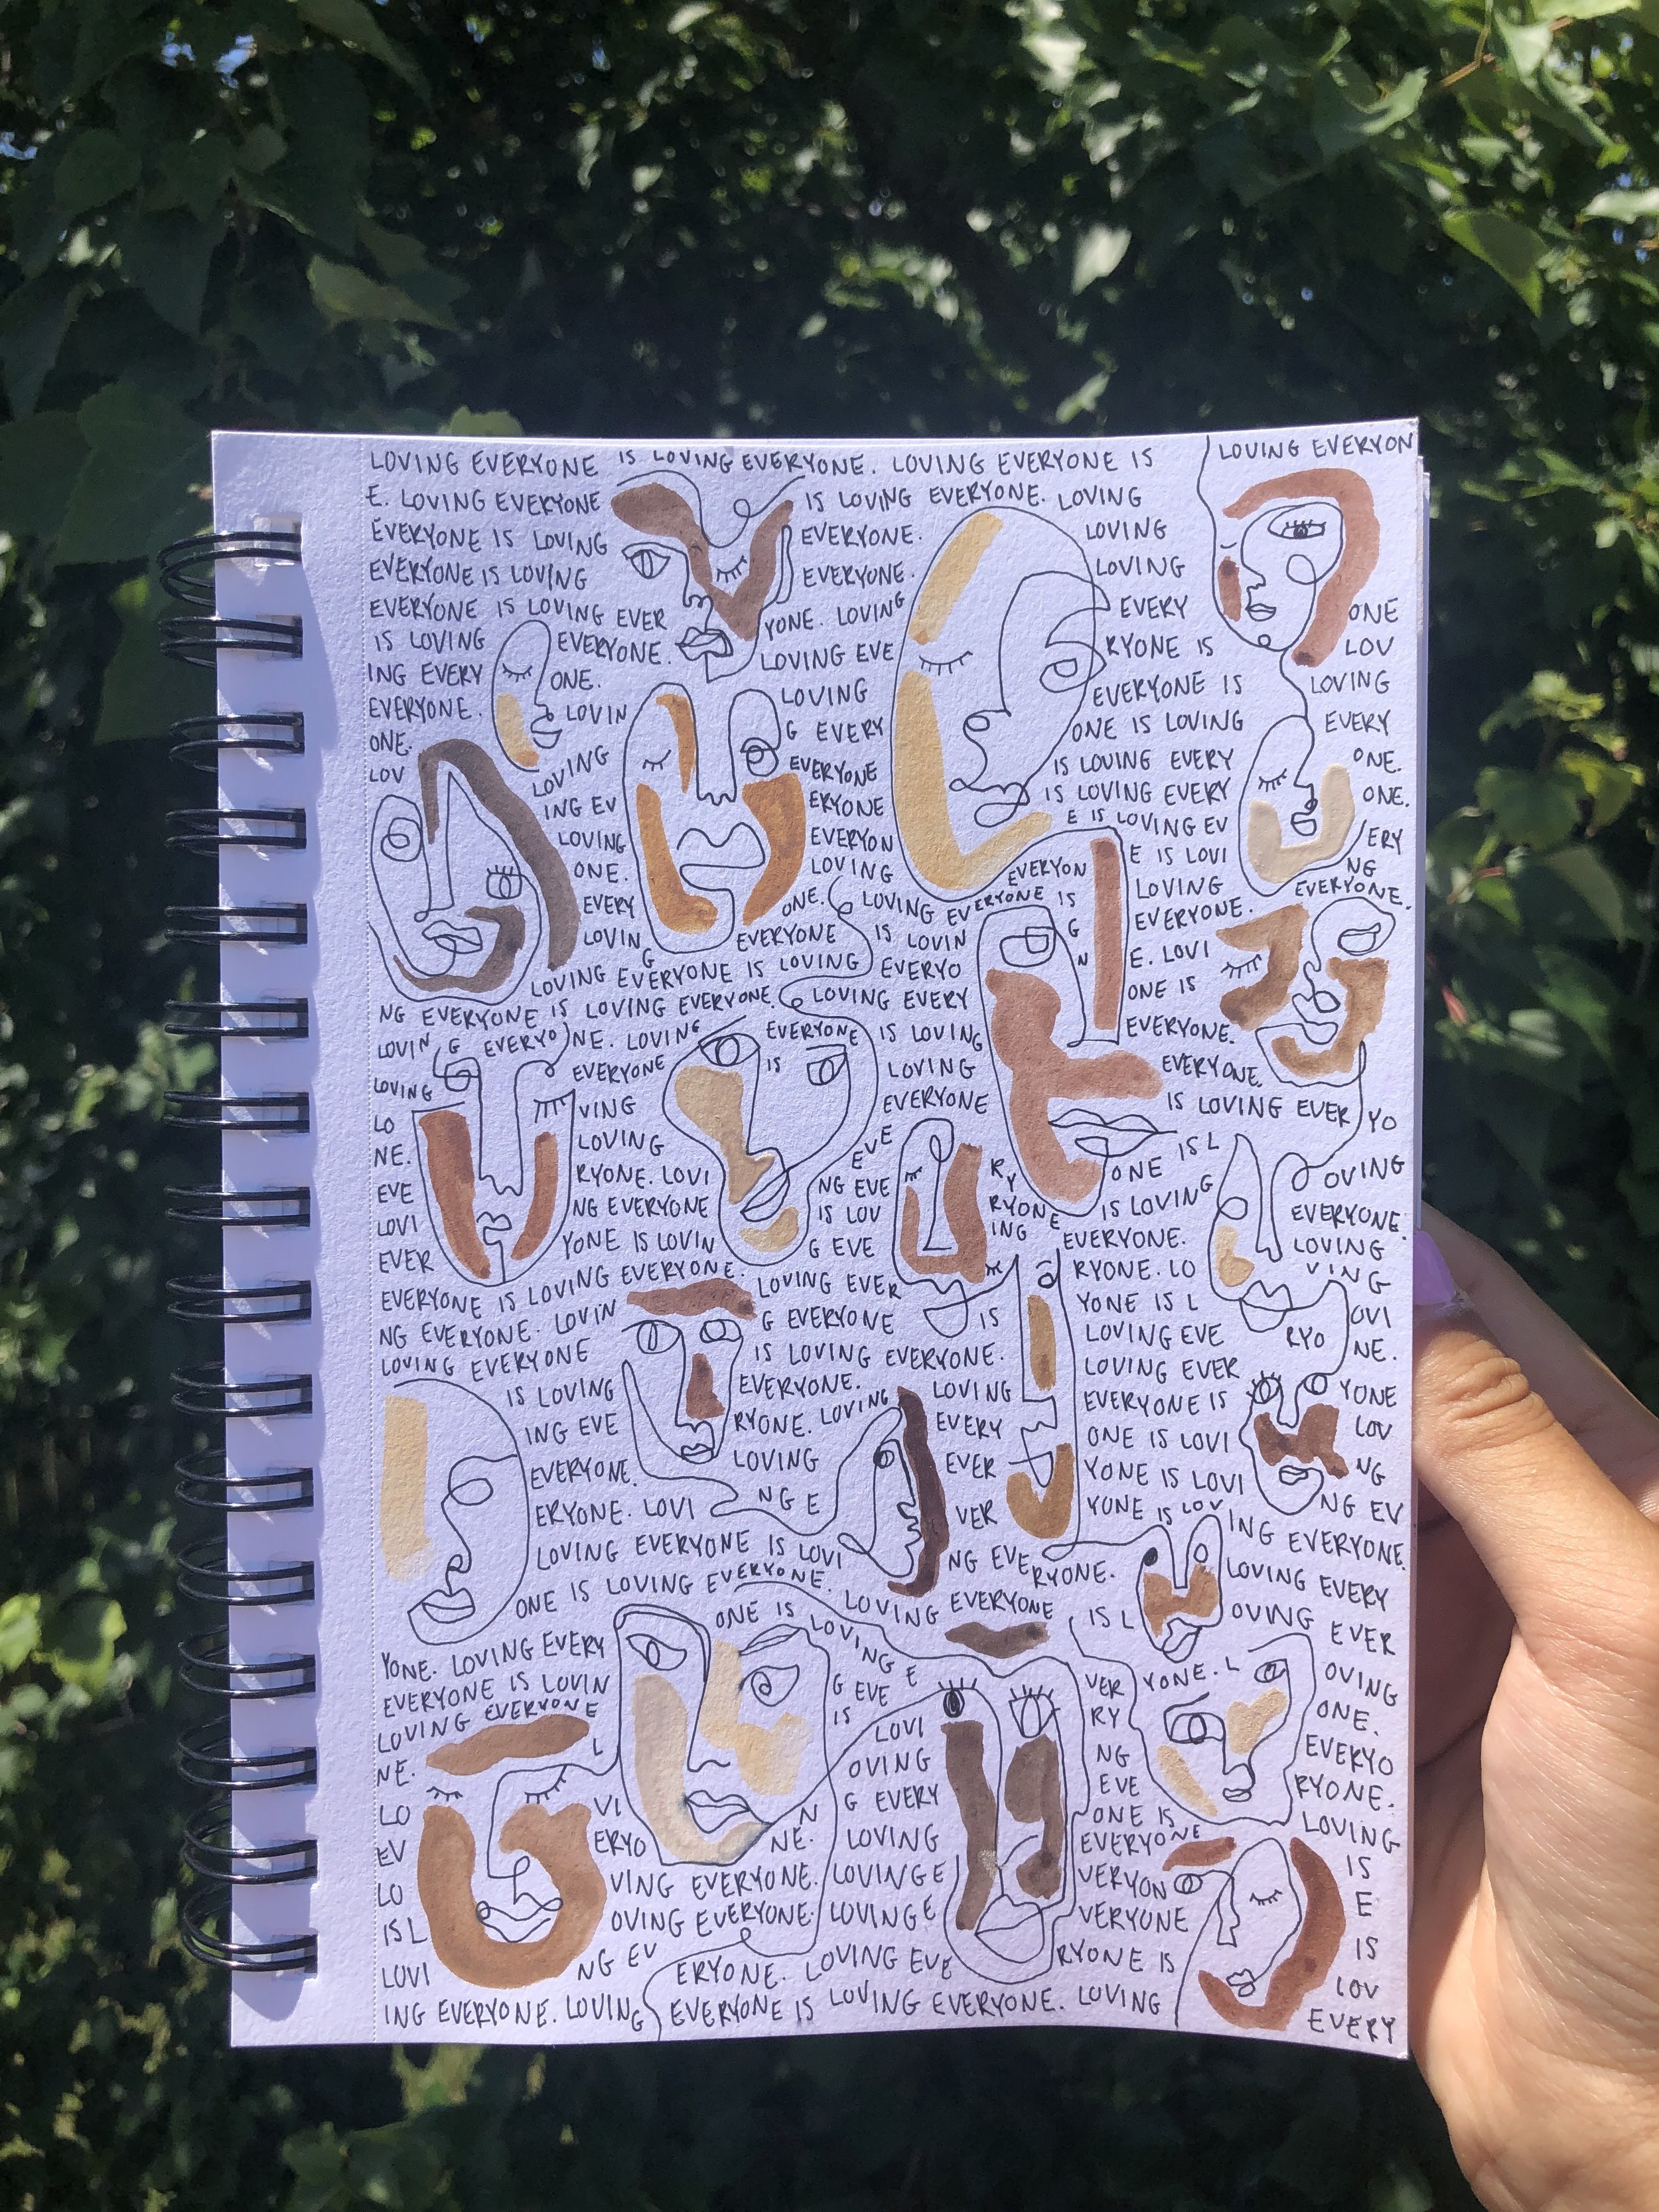 LOVING EVERYONE IS LOVING EVERYONE. LOVING EVERYONE IS LOVING EVERYON
E. LOVING EVERYONE IS LOVING EVERYONE. LOVING
EVERYONE IS LOVING EVERYONE. LOVING
EVERYONE IS LOVING EVERYONE. LOVING
EVERYONE IS LOVING EVER YONE. LOVING EVERY ONE
IS LOVING EVERYONE. LOVING EVE RYONE IS LOV
ING EVERY ONE. LOVING EVERYONE IS LOVING
EVERYONE. LOVIN G EVERY ONE IS LOVING EVERY
ONE. LOVING EVERYONE IS LOVING EVERY ONE.
LOV ING EV ERYONE IS LOVING EVERY ONE.
LOVING EVERYON E IS LOVING EV ERY
ONE. LOVING EVERYON E IS LOVI NG
EVERY ONE. LOVING EVERYONE IS LOVING EVERYONE.
LOVIN G EVERYONE IS LOVIN G EVERYONE.
LOVING EVERYONE IS LOVING EVERYO N E. LOVI
NG EVERYONE IS LOVING EVERYONE. LOVING EVERY ONE IS
LOVIN G EVERYO NE. LOVING EVERYONE IS LOVING EVERYONE.
LOVING EVERYONE IS LOVING EVERYONE.
LO VING EVERYONE IS LOVING EVER YO
NE. LOVING EVE RY ONE IS L OVING
EVE RYONE. LOVI NG EVE RYONE IS LOVING EVERYONE.
LOVI NG EVERYONE IS LOV ING EVERYONE. LOVING
EVER YONE IS LOVIN G EVE RYONE. LO VING
EVERYONE IS LOVING EVERYONE. LOVING EVER YONE IS L OVI
NG EVERYONE. LOVIN G EVERYONE IS LOVING EVE RYO NE.
LOVING EVERYONE IS LOVING EVERYONE. LOVING EVER YONE
IS LOVING EVERYONE. LOVING EVERYONE IS LOV
ING EVE RYONE. LOVING EVERY ONE IS LOVI NG
EVERYONE. LOVING EVER YONE IS LOVI NG EV
ERYONE. LOVI NG E VER YONE IS LOV ING EVERYONE.
LOVING EVERYONE IS LOVI NG EVE RYONE. LOVING EVERY
ONE IS LOVING EVERYONE. LOVING EVERYONE IS L OVING EVER
YONE. LOVING EVERY ONE IS LOVING E VER YONE. L OVING
EVERYONE IS LOVIN G EVE RY ONE.
LOVING EVERYONE IS LOVI NG EVERYO
NE. L OVING EVE RYONE.
LO VI N G EVERY ONE IS LOVING
EV ERYO NE. LOVING EVERYONE IS
LO VING EVERYONE. LOVING E VERYON E
IS L OVING EVERYONE. LOVING E VERYONE IS
LOVI NG EV ERYONE. LOVING EVE RYONE IS LOV
ING EVERYONE. LOVING EVERYONE IS LOVING EVERYONE. LOVING EVERY